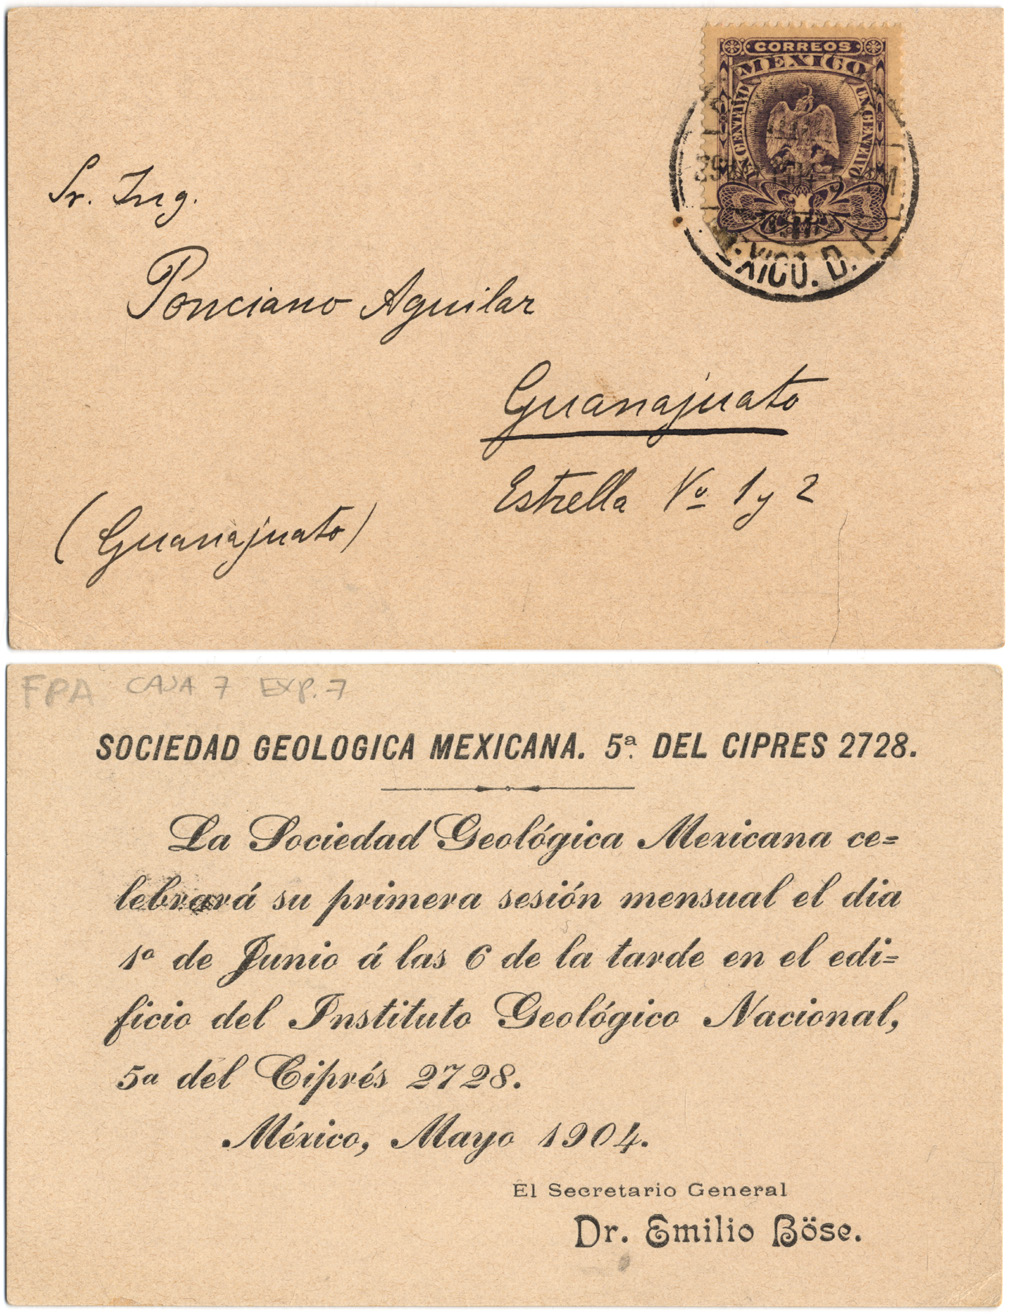 CORREOS
MEXICO
UN CENTAVO
MEXICO. D. F.
Sr. Ing.
Ponciano Aguilar
Guanajuato
Estrella Nº 1 y 2
(Guanajuato)
FPA CAJA 7 EXP. 7
SOCIEDAD GEOLOGICA MEXICANA. 5ª DEL CIPRES 2728.
La Sociedad Geológica Mexicana ce=
lebrará su primera sesión mensual el dia
1º de Junio á las 6 de la tarde en el edi=
ficio del Instituto Geológico Nacional,
5a del Ciprés 2728.
México, Mayo 1904.
El Secretario General
Dr. Emilio Böse.